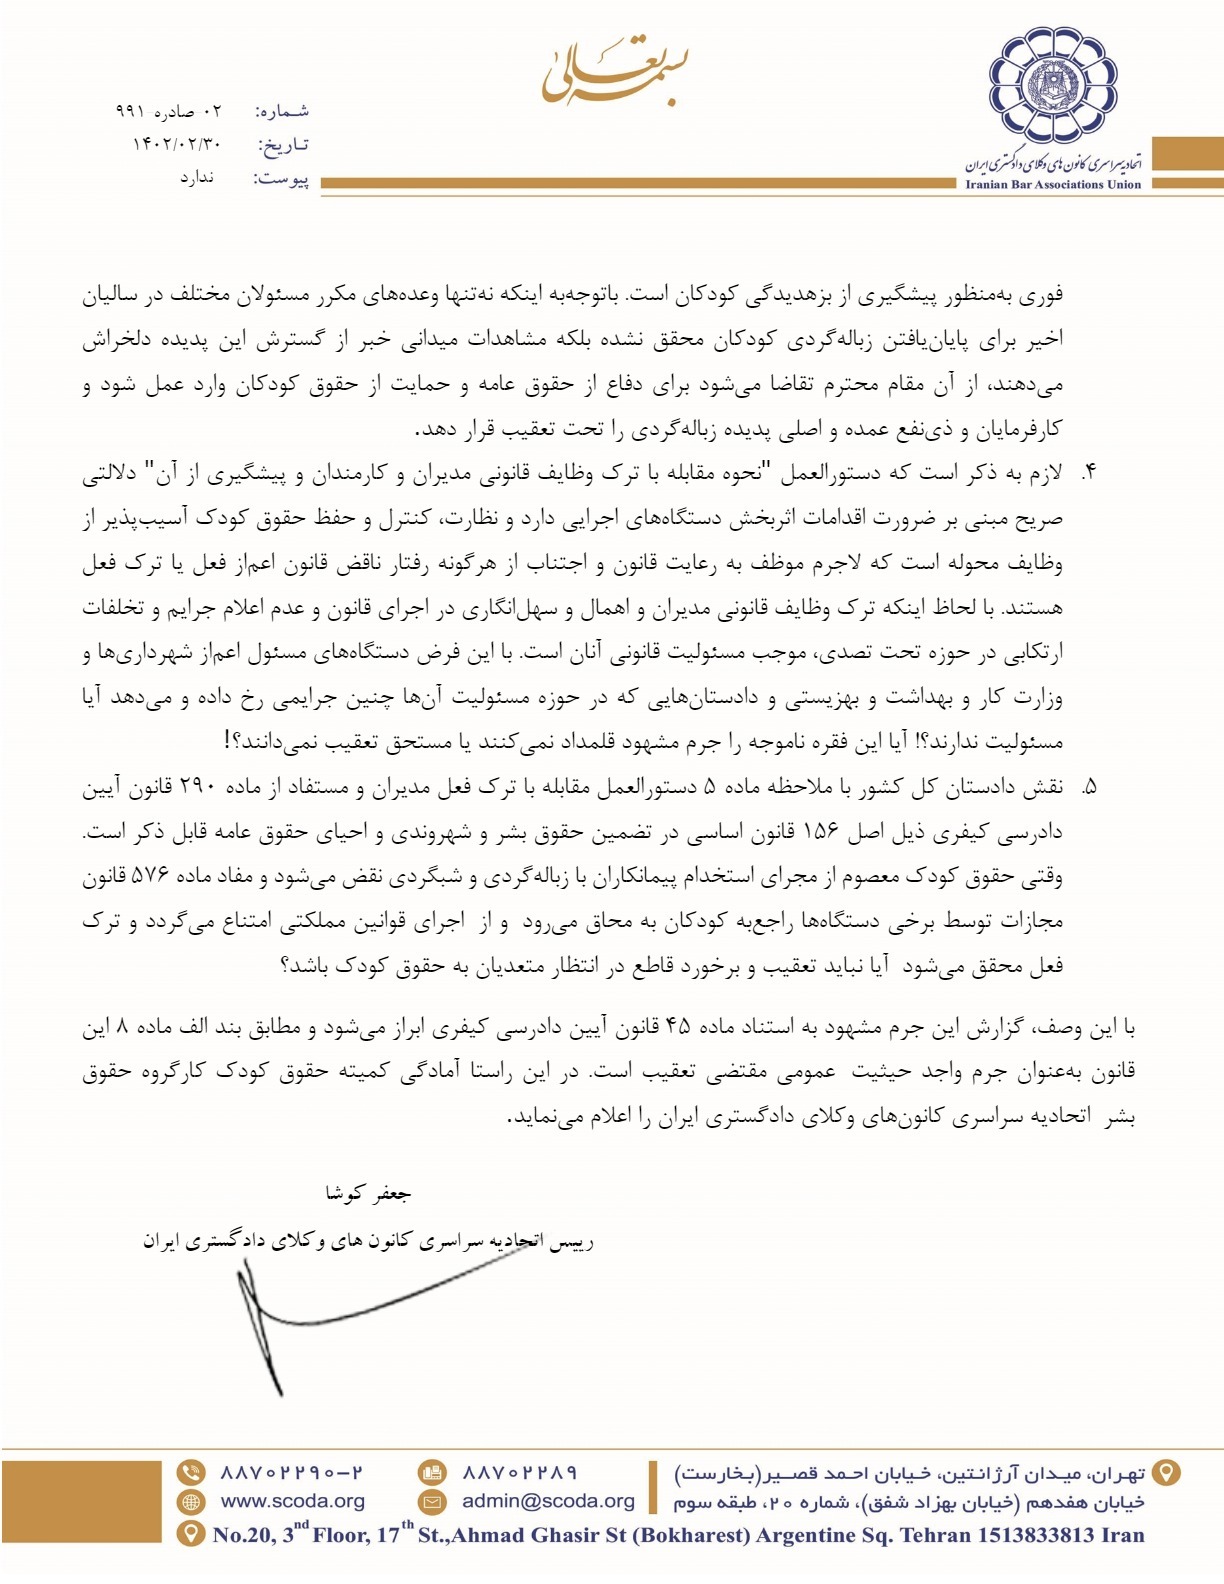 بسمه تعالی
اتحادیه سراسری کانون های وکلای دادگستری ایران
Iranian Bar Associations Union
شماره: ۰۲-صادره-۹۹۱
تاریخ: ۱۴۰۲/۰۲/۳۰
پیوست: ندارد
فوری به‌منظور پیشگیری از بزهدیدگی کودکان است. باتوجه‌به اینکه نه‌تنها وعده‌های مکرر مسئولان مختلف در سالیان
اخیر برای پایان‌یافتن زباله‌گردی کودکان محقق نشده بلکه مشاهدات میدانی خبر از گسترش این پدیده دلخراش
می‌دهند، از آن مقام محترم تقاضا می‌شود برای دفاع از حقوق عامه و حمایت از حقوق کودکان وارد عمل شود و
کارفرمایان و ذی‌نفع عمده و اصلی پدیده زباله‌گردی را تحت تعقیب قرار دهد.
۴. لازم به ذکر است که دستورالعمل "نحوه مقابله با ترک وظایف قانونی مدیران و کارمندان و پیشگیری از آن" دلالتی
صریح مبنی بر ضرورت اقدامات اثربخش دستگاه‌های اجرایی دارد و نظارت، کنترل و حفظ حقوق کودک آسیب‌پذیر از
وظایف محوله است که لاجرم موظف به رعایت قانون و اجتناب از هرگونه رفتار ناقض قانون اعم‌از فعل یا ترک فعل
هستند. با لحاظ اینکه ترک وظایف قانونی مدیران و اهمال و سهل‌انگاری در اجرای قانون و عدم اعلام جرایم و تخلفات
ارتکابی در حوزه تحت تصدی، موجب مسئولیت قانونی آنان است. با این فرض دستگاه‌های مسئول اعم‌از شهرداری‌ها و
وزارت کار و بهداشت و بهزیستی و دادستان‌هایی که در حوزه مسئولیت آن‌ها چنین جرایمی رخ داده و می‌دهد آیا
مسئولیت ندارند؟! آیا این فقره ناموجه را جرم مشهود قلمداد نمی‌کنند یا مستحق تعقیب نمی‌دانند؟!
۵. نقش دادستان کل کشور با ملاحظه ماده ۵ دستورالعمل مقابله با ترک فعل مدیران و مستفاد از ماده ۲۹۰ قانون آیین
دادرسی کیفری ذیل اصل ۱۵۶ قانون اساسی در تضمین حقوق بشر و شهروندی و احیای حقوق عامه قابل ذکر است.
وقتی حقوق کودک معصوم از مجرای استخدام پیمانکاران با زباله‌گردی و شبگردی نقض می‌شود و مفاد ماده ۵۷۶ قانون
مجازات توسط برخی دستگاه‌ها راجع‌به کودکان به محاق می‌رود و از اجرای قوانین مملکتی امتناع می‌گردد و ترک
فعل محقق می‌شود آیا نباید تعقیب و برخورد قاطع در انتظار متعدیان به حقوق کودک باشد؟
با این وصف، گزارش این جرم مشهود به استناد ماده ۴۵ قانون آیین دادرسی کیفری ابراز می‌شود و مطابق بند الف ماده ۸ این
قانون به‌عنوان جرم واجد حیثیت عمومی مقتضی تعقیب است. در این راستا آمادگی کمیته حقوق کودک کارگروه حقوق
بشر اتحادیه سراسری کانون‌های وکلای دادگستری ایران را اعلام می‌نماید.
جعفر کوشا
رییس اتحادیه سراسری کانون های وکلای دادگستری ایران
تهران، میدان آرژانتین، خیابان احمد قصیر(بخارست)
خیابان هفدهم (خیابان بهزاد شفق)، شماره ۲۰، طبقه سوم
۸۸۷۰۲۲۸۹
admin@scoda.org
۸۸۷۰۲۲۹۰-۲
www.scoda.org
No.20, 3nd Floor, 17th St.,Ahmad Ghasir St (Bokharest) Argentine Sq. Tehran 1513833813 Iran